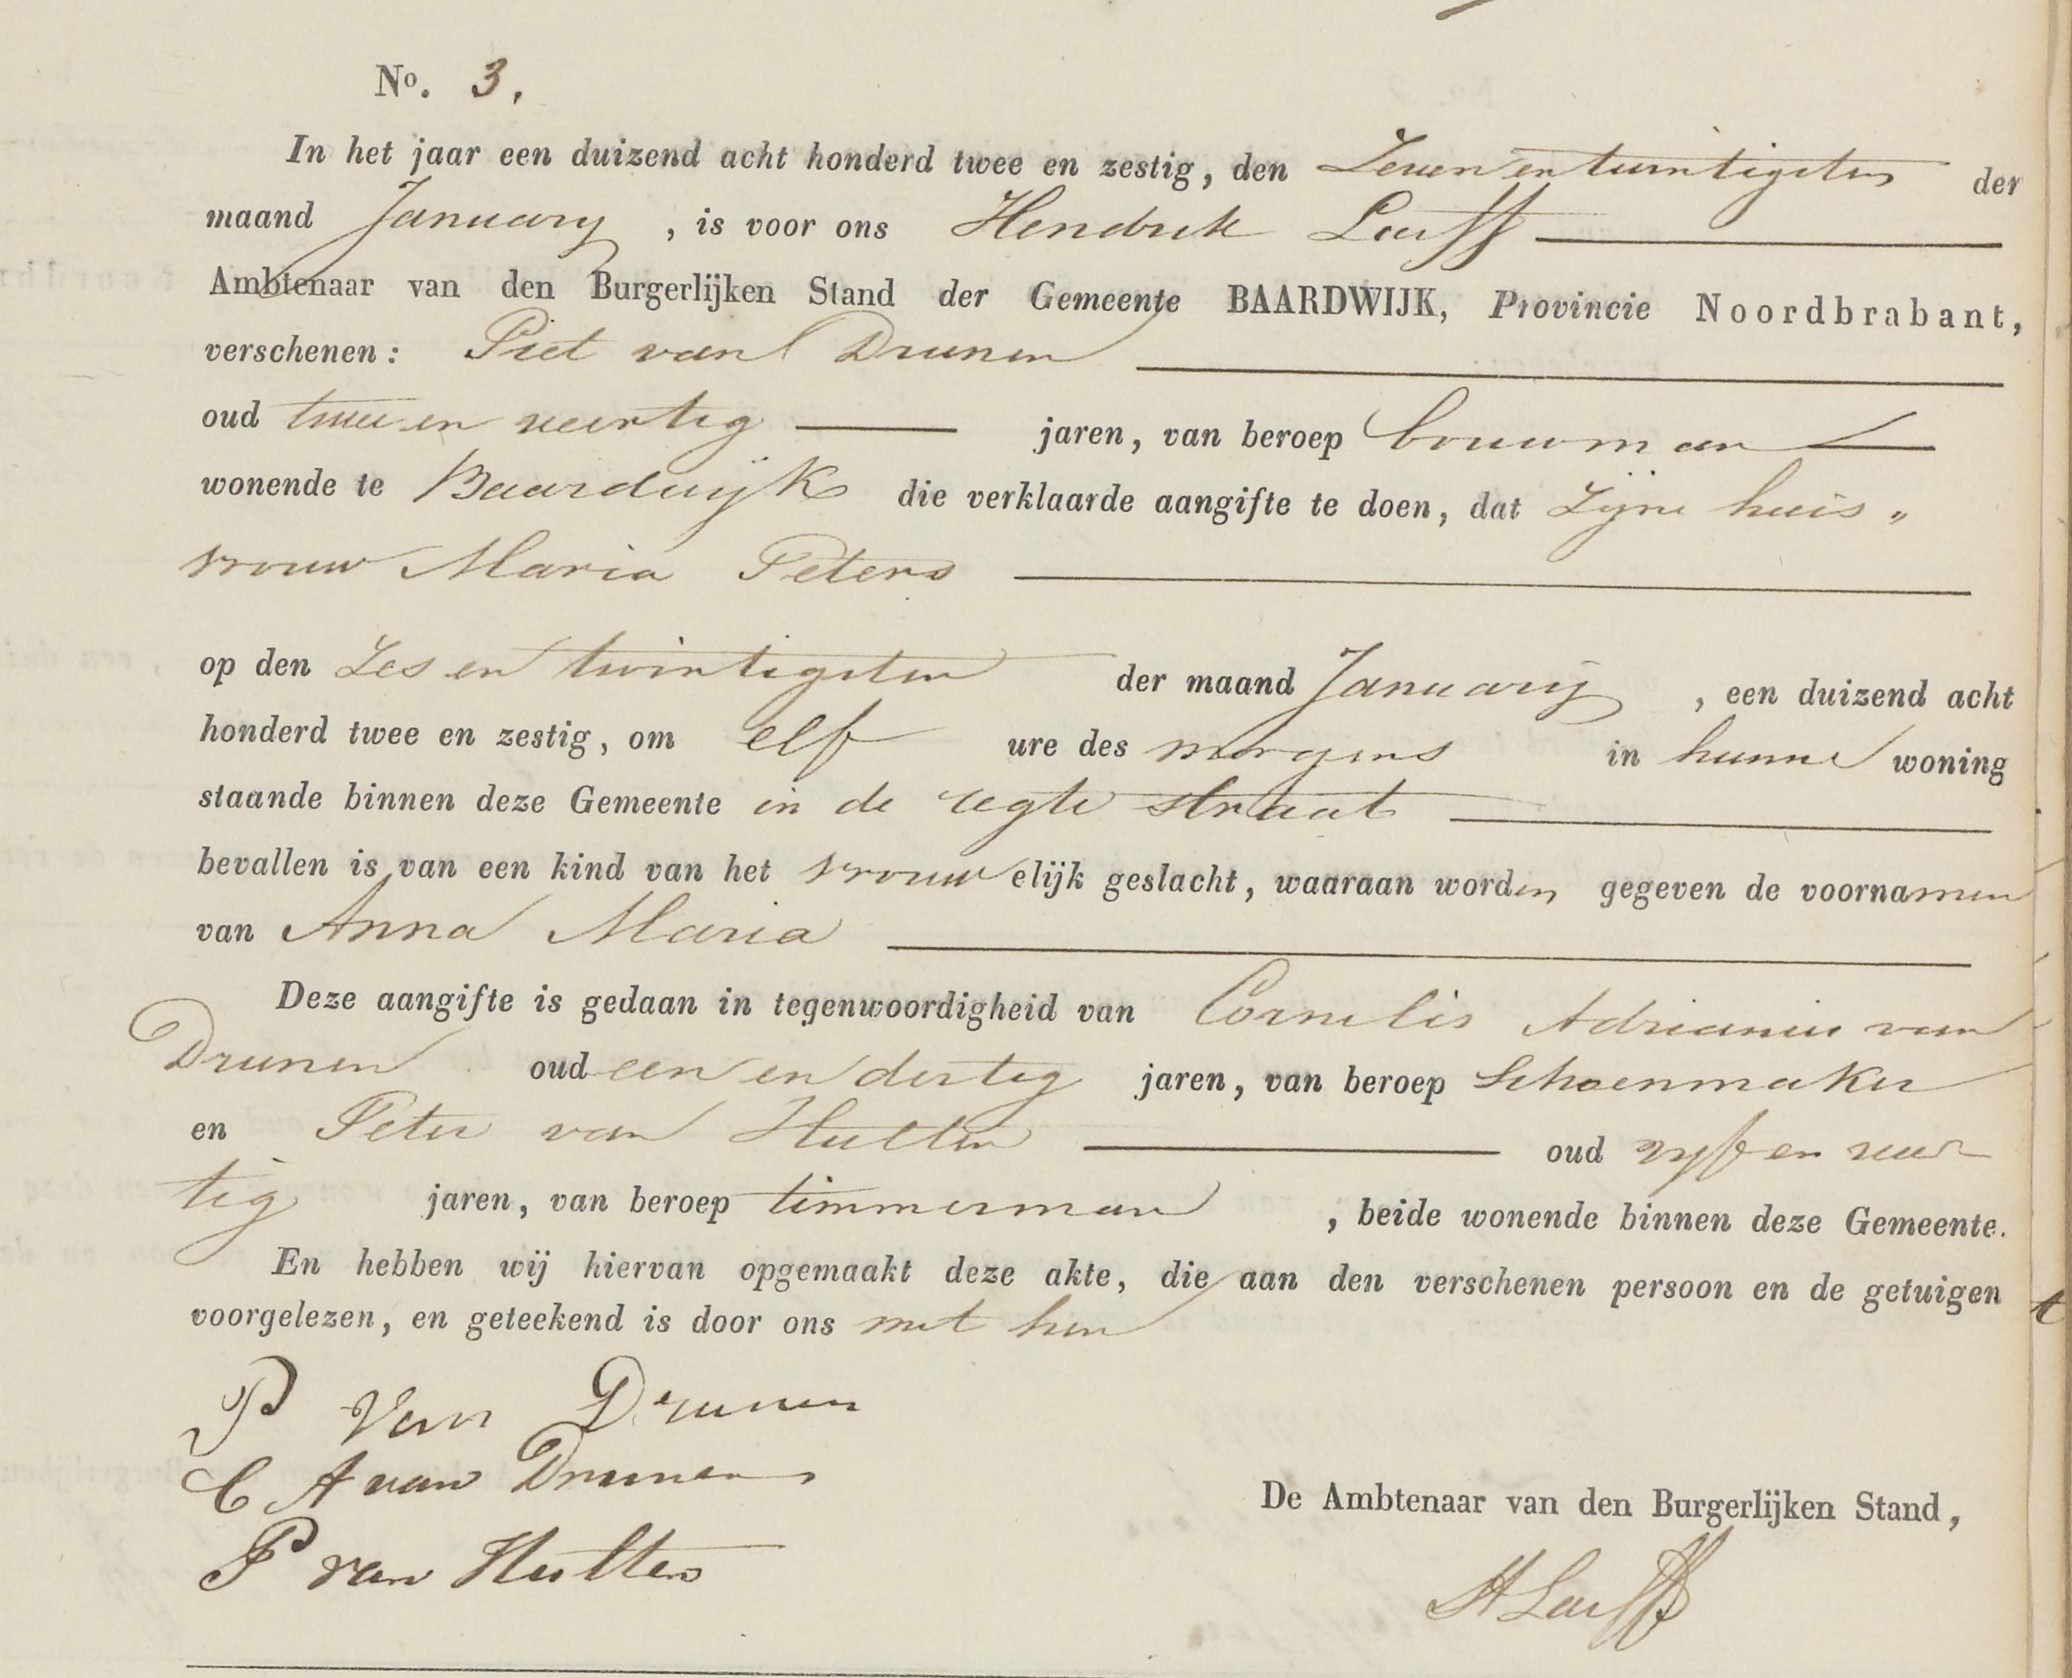 No. 3.
In het jaar een duizend acht honderd twee en zestig, den Zeven en twintigsten der
maand January, is voor ons Hendrik Luijff
Ambtenaar van den Burgerlijken Stand der Gemeente BAARDWIJK, Provincie Noordbrabant,
verschenen: Piet van Drunen
oud twee en veertig jaren, van beroep bouwman
wonende te Baardwijk die verklaarde aangifte te doen, dat Zijne huis„
vrouw Maria Peters
op den Zes en twintigsten der maand January, een duizend acht
honderd twee en zestig, om elf ure des morgens in hunne woning
staande binnen deze Gemeente in de regte straat
bevallen is van een kind van het vrouwelijk geslacht, waaraan worden gegeven de voornamen
van Anna Maria
Deze aangifte is gedaan in tegenwoordigheid van Cornelis Adrianus van
Drunen oud een en dertig jaren, van beroep Schoenmaker
en Peter van Hulten oud vyf en veer
tig jaren, van beroep timmerman, beide wonende binnen deze Gemeente.
En hebben wij hiervan opgemaakt deze akte, die aan den verschenen persoon en de getuigen
voorgelezen, en geteekend is door ons met hen
P Van Drunen
C A van Drunen
P van Hulten
De Ambtenaar van den Burgerlijken Stand,
H Luijff